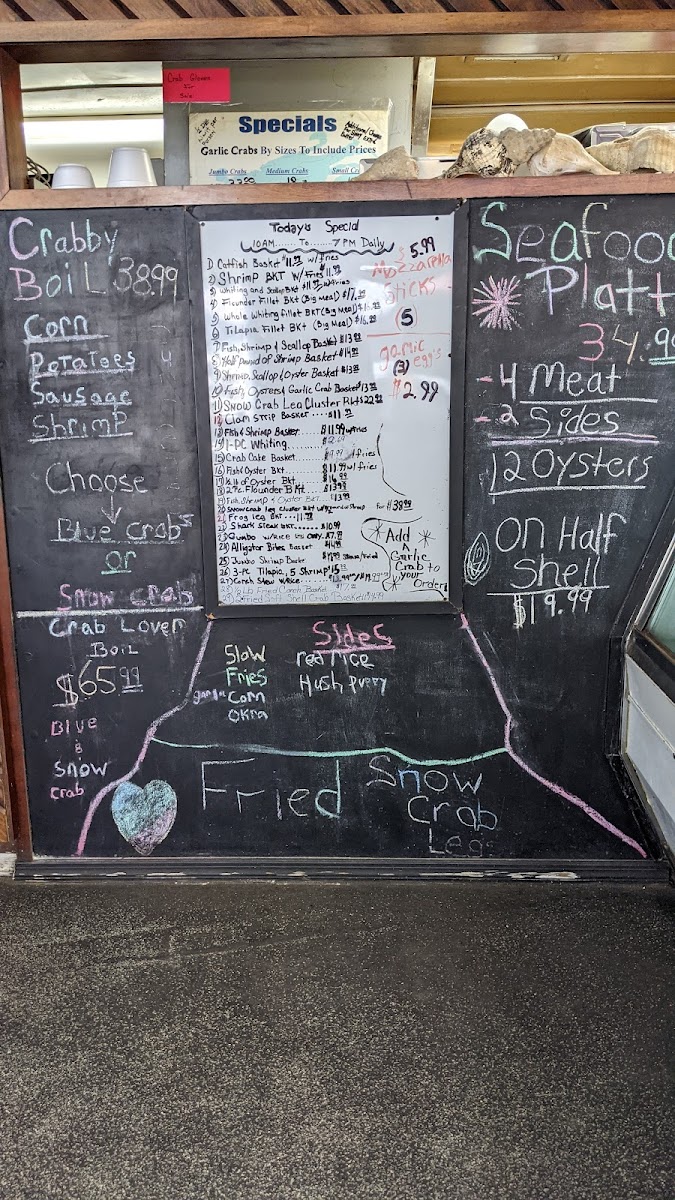 Crab Gloves
For
Sale
Specials
Garlic Crabs By Sizes To Include Prices
Jumbo Crabs Medium Crabs Small Cr
Crabby
Boil 38.99
Corn
Potatoes
Sausage
Shrimp
Choose
Blue Crabs
or
Snow crab
Crab Lover
Boil
$65.99
Blue
&
Snow
crab
Today's Special
10AM...... To ......7 PM Daily
1) Catfish Basket $11.99 w/fries
2) Shrimp BKT w/fries 11.99
3) Whiting and Scallop BKt $11.99 w/fries
4) Flounder Fillet Bkt (Big Meal) $17.99
5) Whole Whiting Fillet BKT (Big Meal)
6) Tilapia Fillet BKt (Big Meal) $16.99
7) Fish, Shrimp & Scallop Basket $13.99
8) Half Pound of Shrimp Basket $14.99
9) Shrimp, Scallop & Oyster Basket $13.99
10) Fish, Oysters & Garlic Crab Basket 13.99
11) Snow Crab Leg Cluster Bkts 22.99
12) Clam Strip Basket ....$11.99
13) Fish & Shrimp Basket..... $11.99 w/fries
14) 1-PC Whiting
15) Crab Cake Basket w/fries
16) Fish & Oyster Bkt. $11.99 w/ fries
17) ½ lb of Oyster Bkt. $16.99
18) 2 Pc. Flounder Bkt.... $13.99
19) Fish Shrimp & Oyster Bkt $13.99
20) Snow Crab leg Cluster Bkt For $38.99
21) Frog leg BKT ...11.99
22) Shark Steak BKT......$10.99
23) Gumbo w/Rice Only $7.99
24) Alligator Bites Basket
25) Jumbo Shrimp Basket
26) 3-PC Tilapia, 5 Shrimp $15.99
27) Conch Stew w/Rice
28) ½ Lb Fried Conch Basket
29) Fried Soft Shell Crab Basket
$5.99
Mozzarella
Sticks
(5)
garlic
(3) egg's
$2.99
Add
a
Garlic
Crab to
your
Order
Sides
Slaw red rice
Fries Hush puppy
garlic Corn
Okra
Fried Snow
Crab
Legs
Seafood
Platt
34.99
- 4 Meat
- 2 Sides
12 Oysters
ON Half
Shell
$19.99